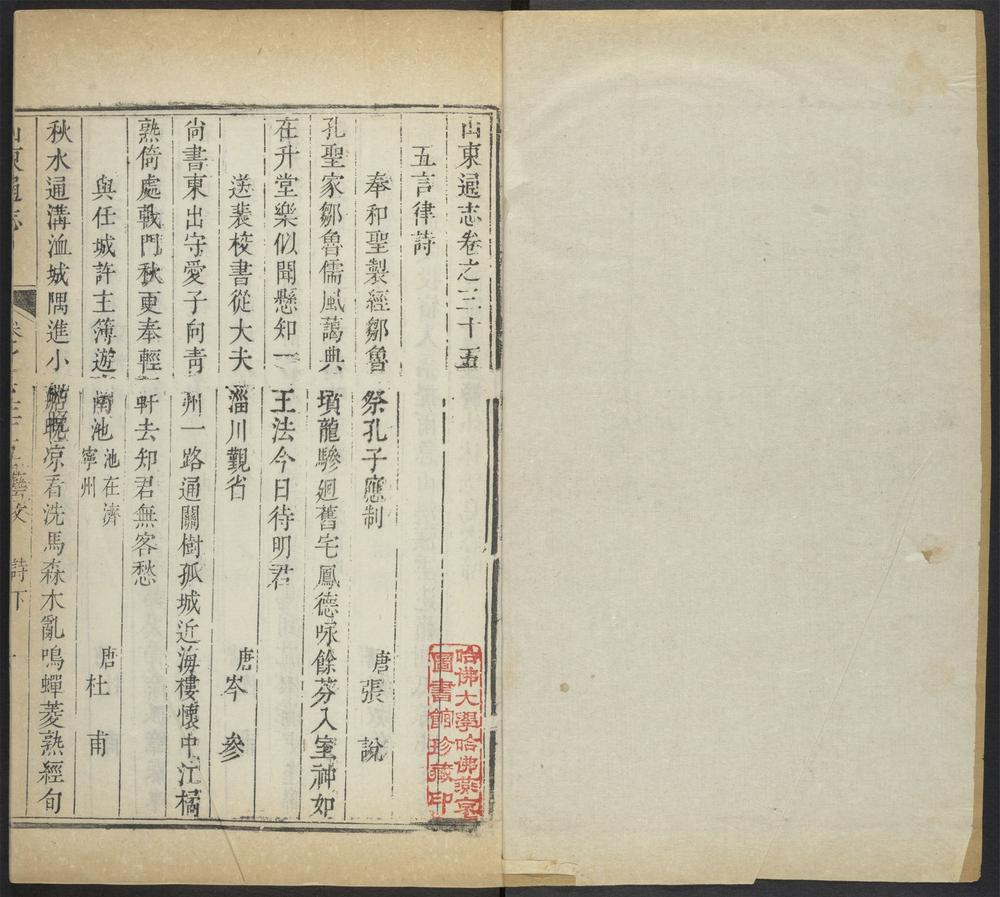 山東通志卷之三十五
五言律詩
奉和聖製經鄒魯祭孔子應制 唐張說
孔聖家鄒魯儒風藹典墳龍驂迴舊宅鳳德咏餘芬入室神如
在升堂樂似聞懸知一王法今日待明君
送裴校書從大夫淄川覲省 唐岑參
尚書東出守愛子向青州一路通關樹孤城近海樓懷中江橘
熟倚處戟門秋更奉輕軒去知君無客愁
與任城許主簿遊南池 池在濟寧州 唐杜甫
秋水通溝洫城隅進小船晚凉看洗馬森木亂鳴蟬菱熟經旬
山東通志 卷之三十五藝文 詩下 一
哈佛大學哈佛燕京
圖書館珍藏印